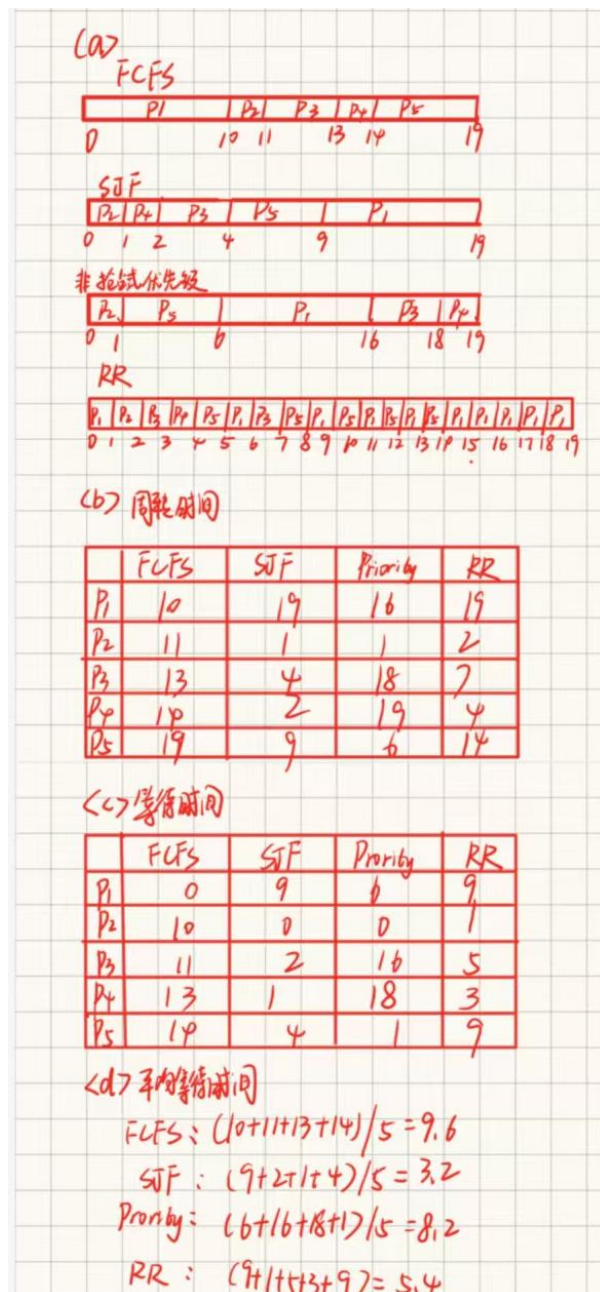 (a)
FCFS
P1 P2 P3 P4 P5
0 10 11 13 14 19
SJF
P2 P4 P3 P5 P1
0 1 2 4 9 19
非抢占式优先级
P2 P5 P1 P3 P4
0 1 6 16 18 19
RR
P1 P2 P3 P4 P5 P1 P3 P5 P1 P5 P1 P5 P1 P5 P1 P1 P1 P1 P1
0 1 2 3 4 5 6 7 8 9 10 11 12 13 14 15 16 17 18 19
<b> 周转时间
FCFS SJF Priority RR
P1 10 19 16 19
P2 11 1 1 2
P3 13 4 18 7
P4 14 2 19 4
P5 19 9 6 14
<c> 等待时间
FCFS SJF Prority RR
P1 0 9 6 9
P2 10 0 0 1
P3 11 2 16 5
P4 13 1 18 3
P5 14 4 1 9
<d> 平均等待时间
FCFS: (10+11+13+14)/5=9.6
SJF: (9+2+1+4)/5=3.2
Prority: (6+16+18+1)/5=8.2
RR: (9+1+5+3+9)=5.4